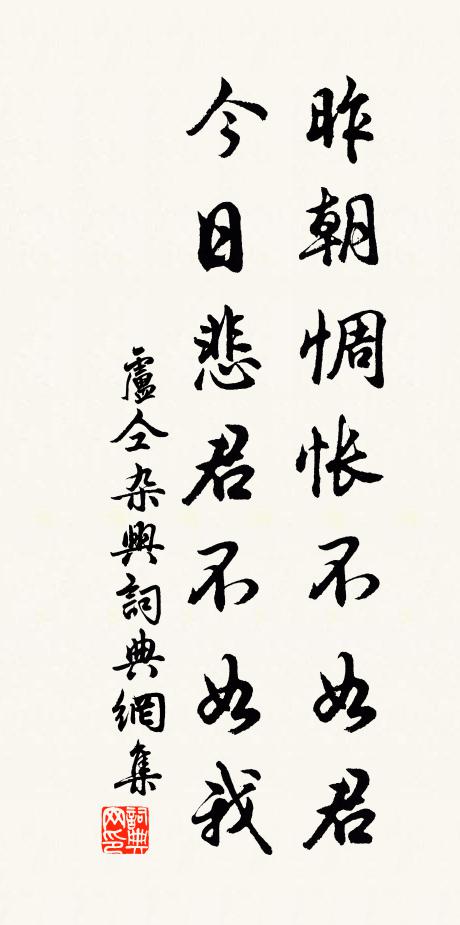 昨朝惆悵不如君
今日悲君不如我
盧仝杂興詞典網集
詞典网印